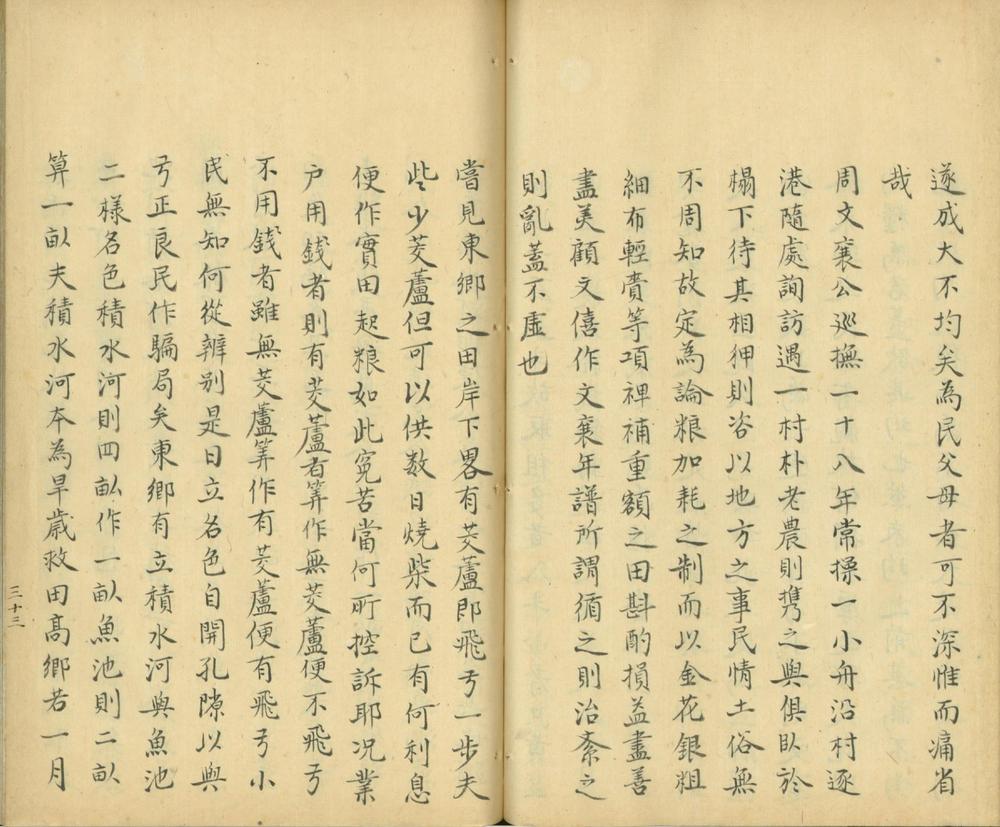 遂成大不均矣為民父母者可不深惟而痛省
哉
周文襄公巡撫二十八年常操一小舟沿村逐
港隨處詢訪遇一村朴老農則携之與俱臥於
榻下待其相狎則咨以地方之事民情土俗無
不周知故定為論粮加耗之制而以金花銀粗
細布輕賫等項裨補重額之田斟酌損益盡善
盡美顧文僖作文襄年譜所謂循之則治紊之
則亂蓋不虛也
嘗見東鄉之田岸下畧有茭蘆即飛弓一步夫
些少茭蘆但可以供数日燒柴而已有何利息
便作實田起粮如此寃苦當何所控訴耶况業
户用錢者則有茭蘆者筭作無茭蘆便不飛弓
不用錢者雖無茭蘆筭作有茭蘆便有飛弓小
民無知何從辨别是日立名色自開孔隙以與
弓正良民作騙局矣東鄉有立積水河與魚池
二樣名色積水河則四畒作一畒魚池則二畒
算一畒夫積水河夲為旱歲救田髙鄉若一月
三十三